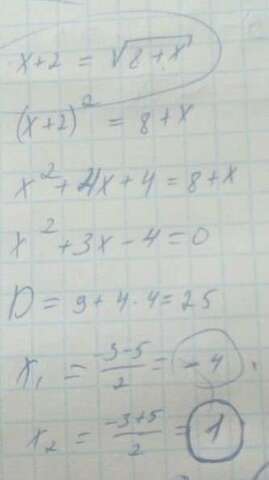 x+2 = √(8+x)
(x+2)² = 8+x
x²+4x+4=8+x
x²+3x-4=0
D = 9+4·4=25
x₁ = (-3-5)/2 = -4
x₂ = (-3+5)/2 = 1